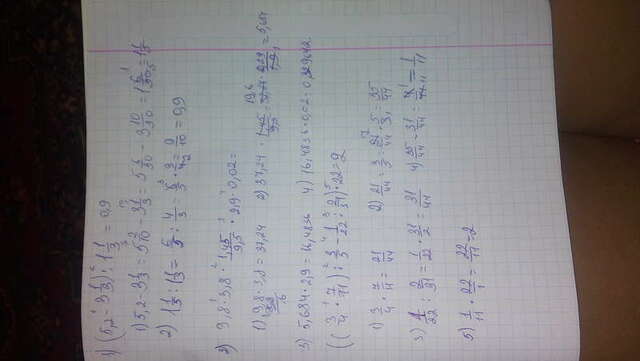 1) (5,2 - 3 1/3) : 1 1/3 = 0,9
1) 5,2 - 3 1/3 = 5 2/10 - 3 1/3 = 5 6/30 - 3 10/30 = 1
2) 1 1/5 : 1 1/3 = 6/5 : 4/3 = 6/5 · 3/4 = 9/10 = 0,9
2) 9,8 · 3,8 · 1,45/9,5 · 2,9 · 0,02 =
1) 9,8 · 3,8 = 37,24 2) 37,24 · = 5,684
3) 5,684 · 2,9 = 16,4836 4) 16,4836 · 0,02 =
((3/4 · 7/11) : 3/5 - 1/22 : 2/31) · 22 = 2
1) 3/4 · 7/11 = 21/44 2) 21/44 : 3/5 = 21/44 · 5/3 = 35/44
3) 1/22 : 2/31 = 1/22 · 31/2 = 31/44 4) 35/44 - 31/44 = 4/44 = 1/11
5) 1/11 · 22/1 = 22/11 = 2